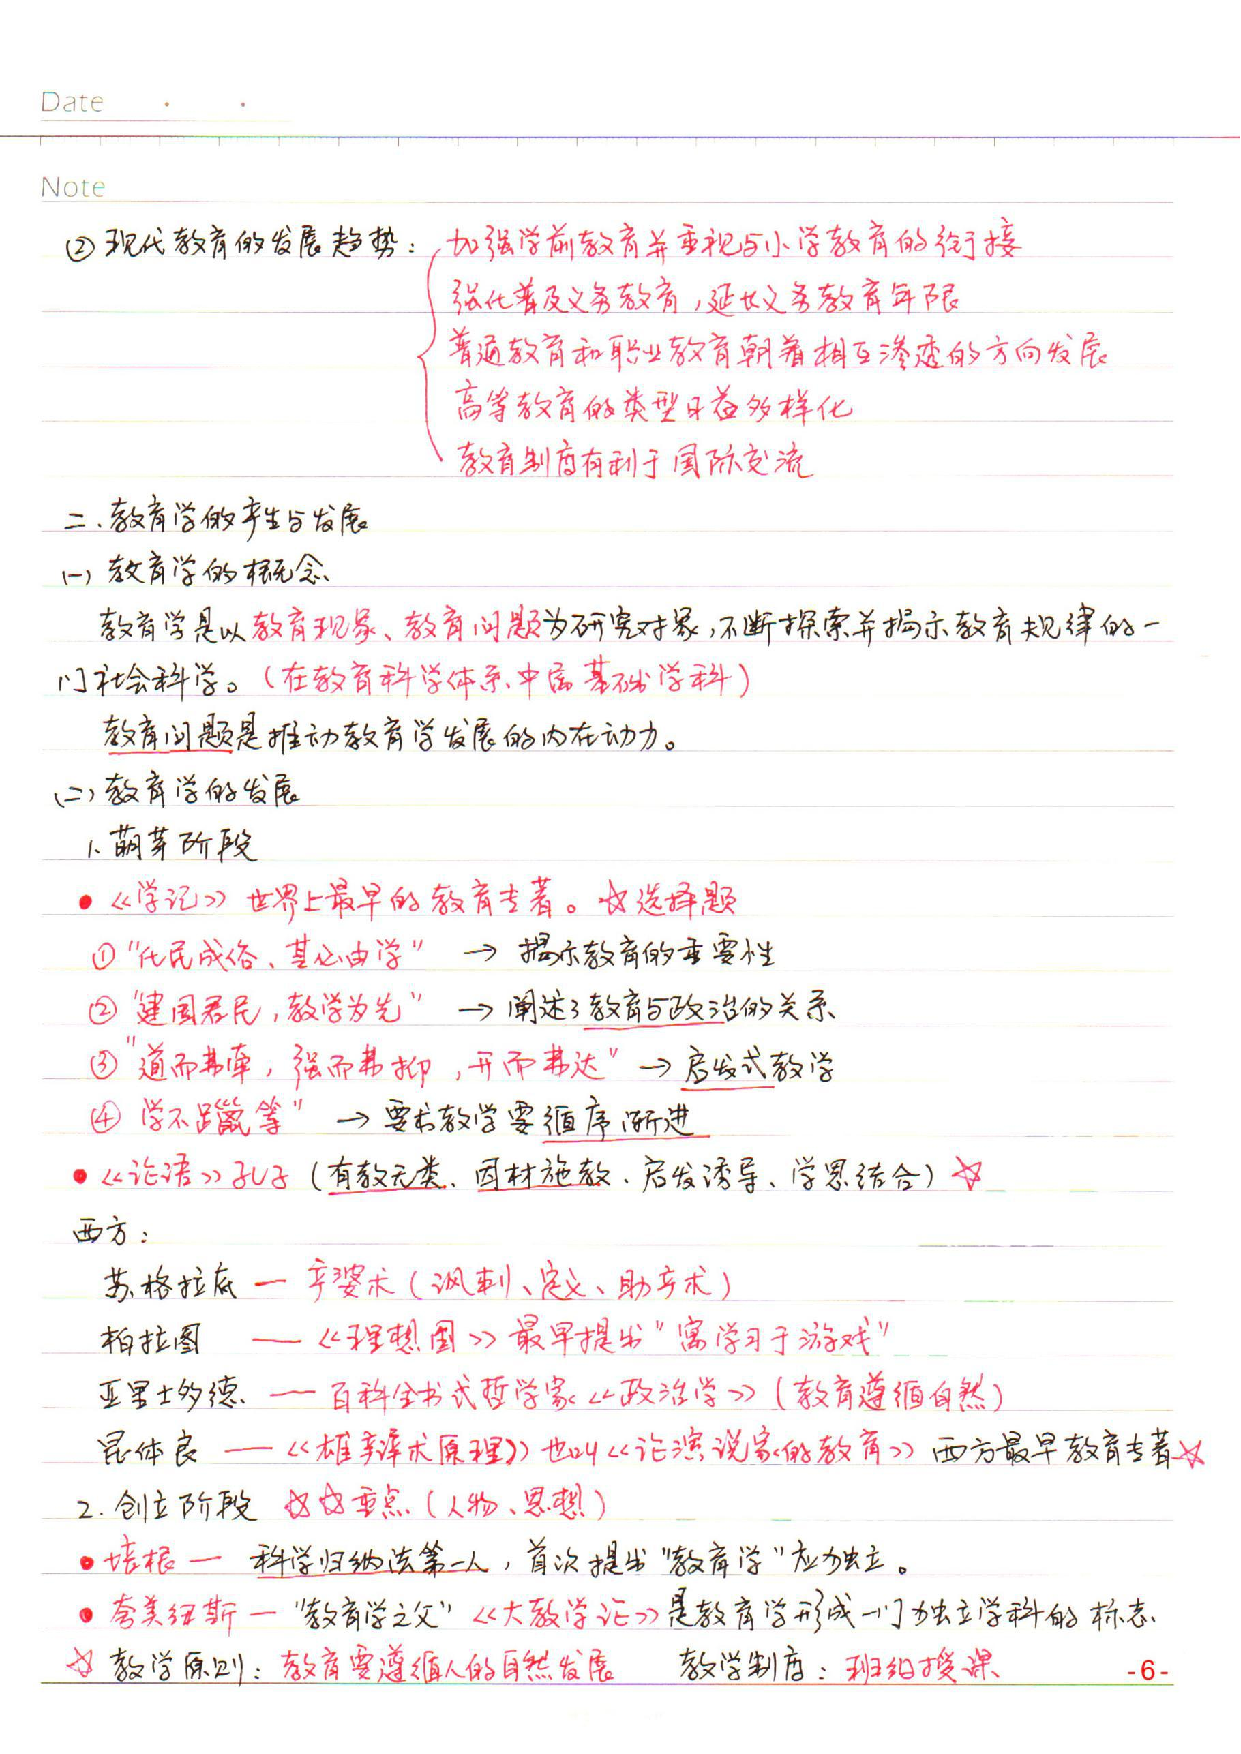 Date
Note
② 现代教育的发展趋势：加强学前教育并重视与小学教育的衔接
强化普及义务教育，延长义务教育年限
普通教育和职业教育朝着相互渗透的方向发展
高等教育的类型日益多样化
教育制度有利于国际交流
二、教育学的产生与发展
(一) 教育学的概念
教育学是以教育现象、教育问题为研究对象，不断探索并揭示教育规律的一
门社会科学。（在教育科学体系中属基础学科）
教育问题是推动教育学发展的内在动力。
(二) 教育学的发展
1. 萌芽阶段
• 《学记》世界上最早的教育专著。☆选择题
① "化民成俗、其必由学" → 揭示教育的重要性
② "建国君民，教学为先" → 阐述了教育与政治的关系
③ "道而弗牵，强而弗抑，开而弗达" → 启发式教学
④ 学不躐等" → 要求教学要循序渐进
• 《论语》孔子（有教无类、因材施教、启发诱导、学思结合）☆
西方：
苏格拉底 — 产婆术（讽刺、定义、助产术）
柏拉图 — 《理想国》最早提出"寓学习于游戏"
亚里士多德 — 百科全书式哲学家《政治学》（教育遵循自然）
昆体良 — 《雄辩术原理》也叫《论演说家的教育》西方最早教育专著☆
2. 创立阶段 ☆☆重点（人物、思想）
• 培根 — 科学归纳法第一人，首次提出"教育学"应独立。
• 夸美纽斯 — "教育学之父"《大教学论》是教育学形成一门独立学科的标志
☆ 教学原则：教育要遵循人的自然发展 教学制度：班级授课
-6-